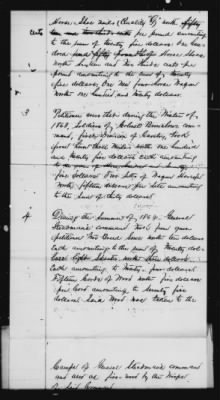 Horse Shoe nails (Quality "G") worth fifty
cents
ten and two thirds cents per pound amounting
to the sum of twenty five dollars. One hun-
dred and fifty pound Horse Shoes
worth sixteen and two thirds cents per
pound amounting to the sum of twenty
five dollars, One new four horse Wagon
worth one hundred and twenty dollars.
3 Petitioner says that during the Winter of
1864, Soldiers of General
mand, Division of Cavalry, took
from him three Mules worth one hundred
and twenty five dollars each amounting
to the sum of three hundred and seventy
five dollars. Two sets of Wagon Harness
worth fifteen dollars per set amounting
to the sum of thirty dollars.
4 During the summer of 1864. General
command took from your
petitioner Two worth ten dollars
each amounting to the sum of twenty dol-
lars Eight worth three dollars
each amounting to twenty four dollars
Fifteen Cords of Wood worth five dollars
per cord amounting to seventy five
dollars. Said Wood was taken to the
Camps of General command
and used as fire wood by the troops
in said Command